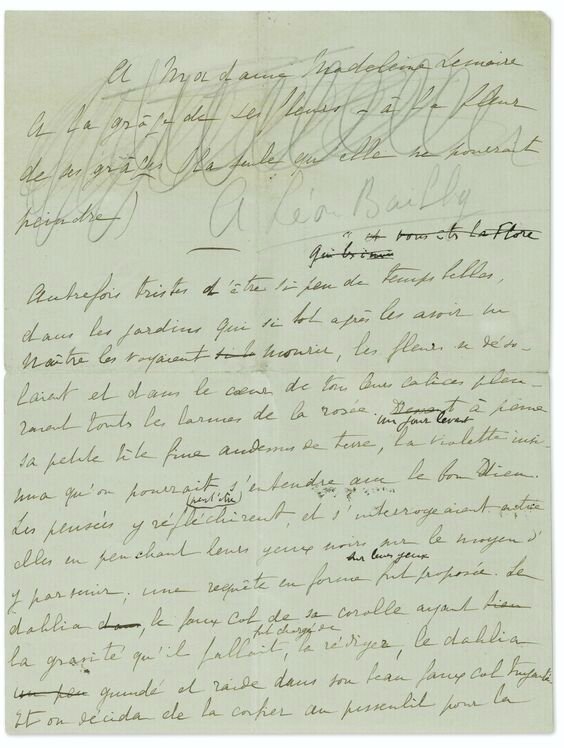 A Madame Madeleine Lemaire
A la grâce de ses fleurs – à la fleur
de ses grâces (la seule qu'elle ne pourrait
peindre)
A Léon Bailby
et vous êtes la Flore
qui les
Autrefois tristes d'être si peu de temps belles,
dans les jardins qui si tôt après les avoir vu
naître les voyaient mourir, les fleurs se déso-
laient et dans le cœur de tous leurs calices pleu-
raient toutes les larmes de la rosée. à peine
un jour levant
sa petite tête fine audessus de terre, la violette insi-
nua qu'on pourrait s'entendre avec le bon Dieu.
(peut'être)
Les pensées y réfléchirent, et s'interrogeaient entre
elles en penchant leurs yeux noirs sur le moyen d'
sur leurs yeux
y parvenir; une requête en forme fut proposée. Le
dahlia , le faux col de sa corolle ayant bien
fut chargé de
la gravité qu'il fallait, la rédiger, le dahlia
un peu guindé et raide dans son beau faux col tuyauté
Et on décida de la confier au pissenlit pour la